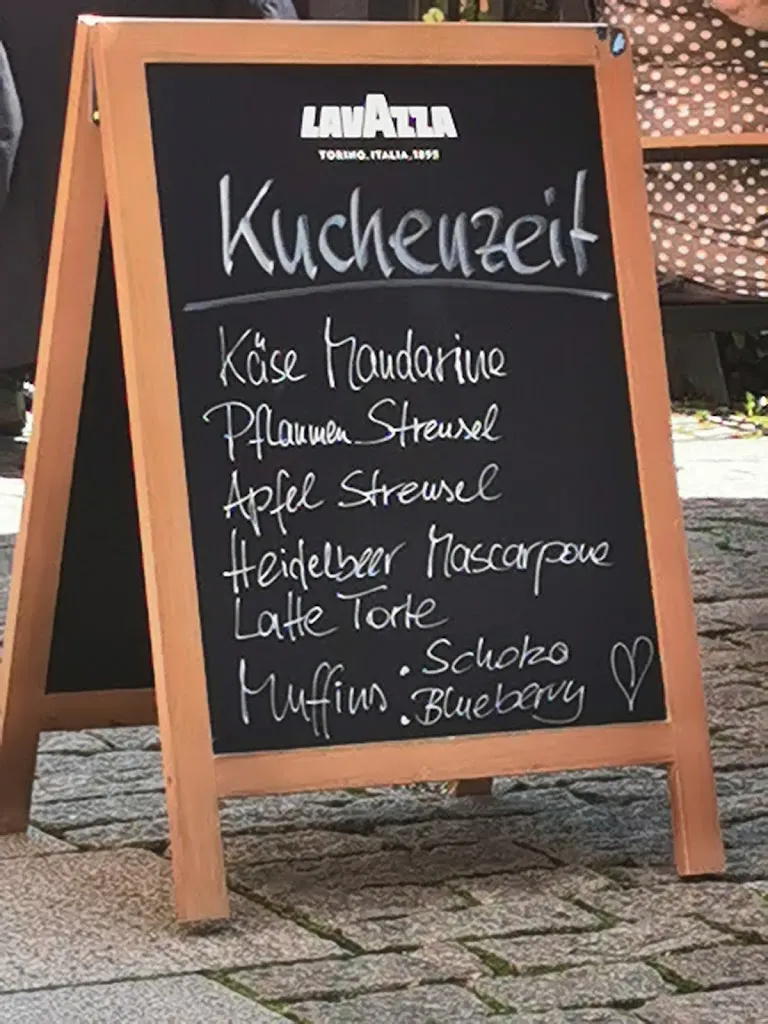 LAVAZZA
TORINO, ITALIA, 1895
Kuchenzeit
Käse Mandarine
Pflaumen Streusel
Apfel Streusel
Heidelbeer Mascarpone
Latte Torte
Muffins . Schoko
. Blueberry